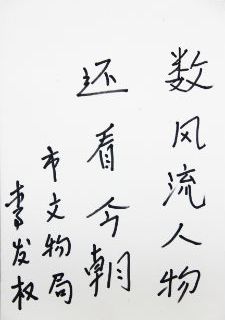 数风流人物
还看今朝
市文物局
李发权